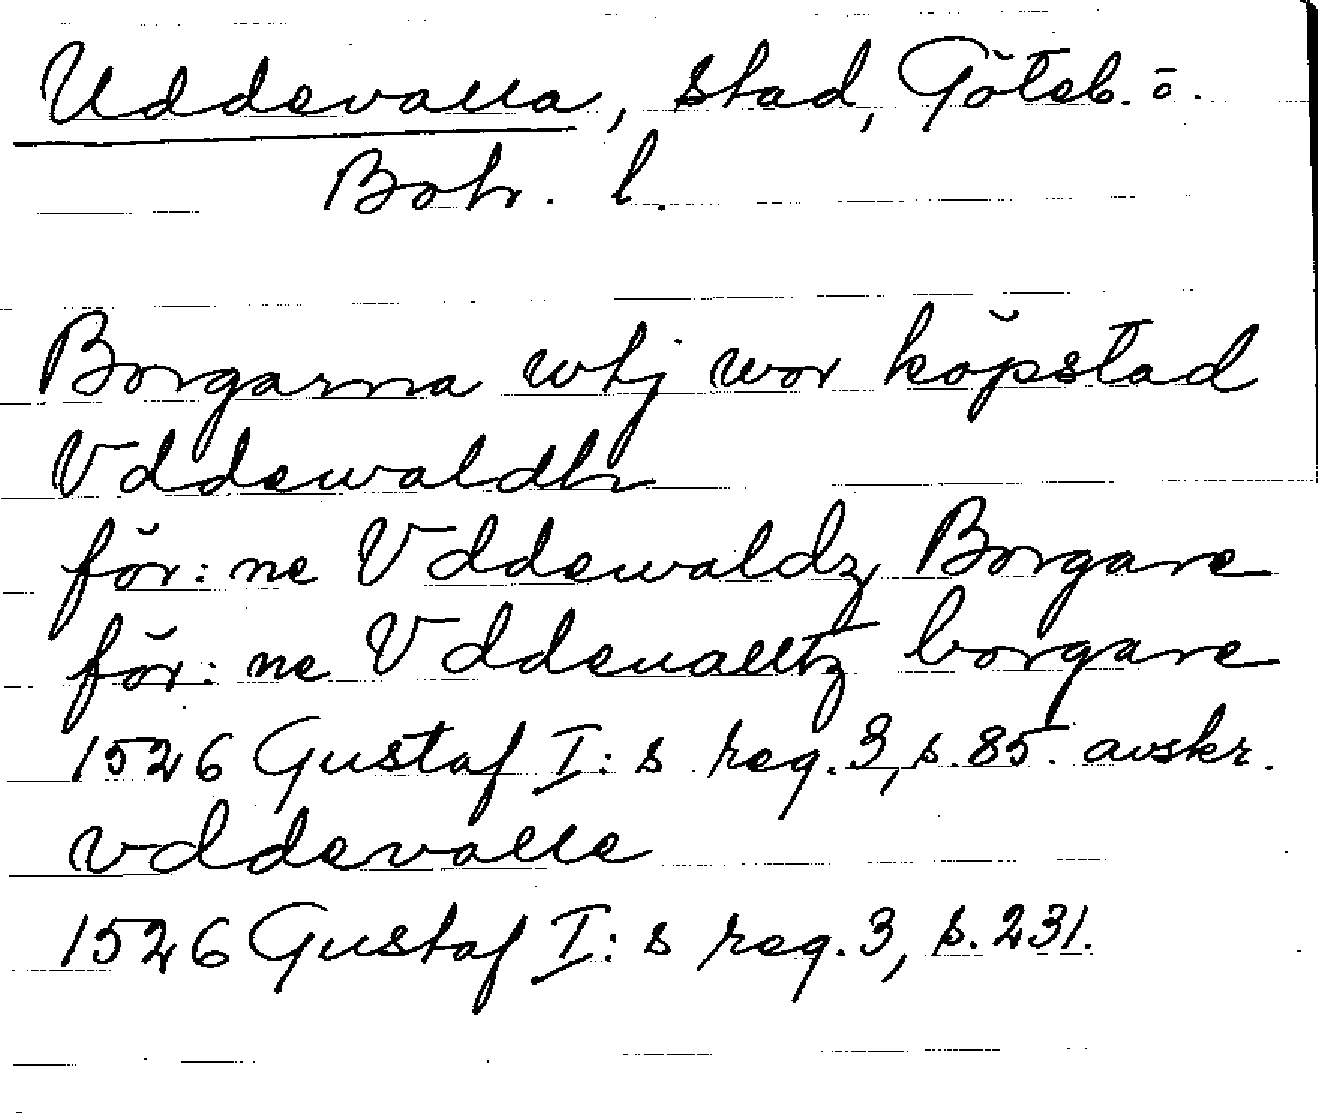 Uddevalla, stad, Göteb. o.
Boh. l.
Borgarna vthj wor köpstad
Vddewaldh
för:ne Vddewaldz Borgare
för:ne Vddeualltz borgare
1526 Gustaf I:s reg. 3, s. 85. avskr.
vddevalle
1526 Gustaf I:s reg. 3, s. 231.